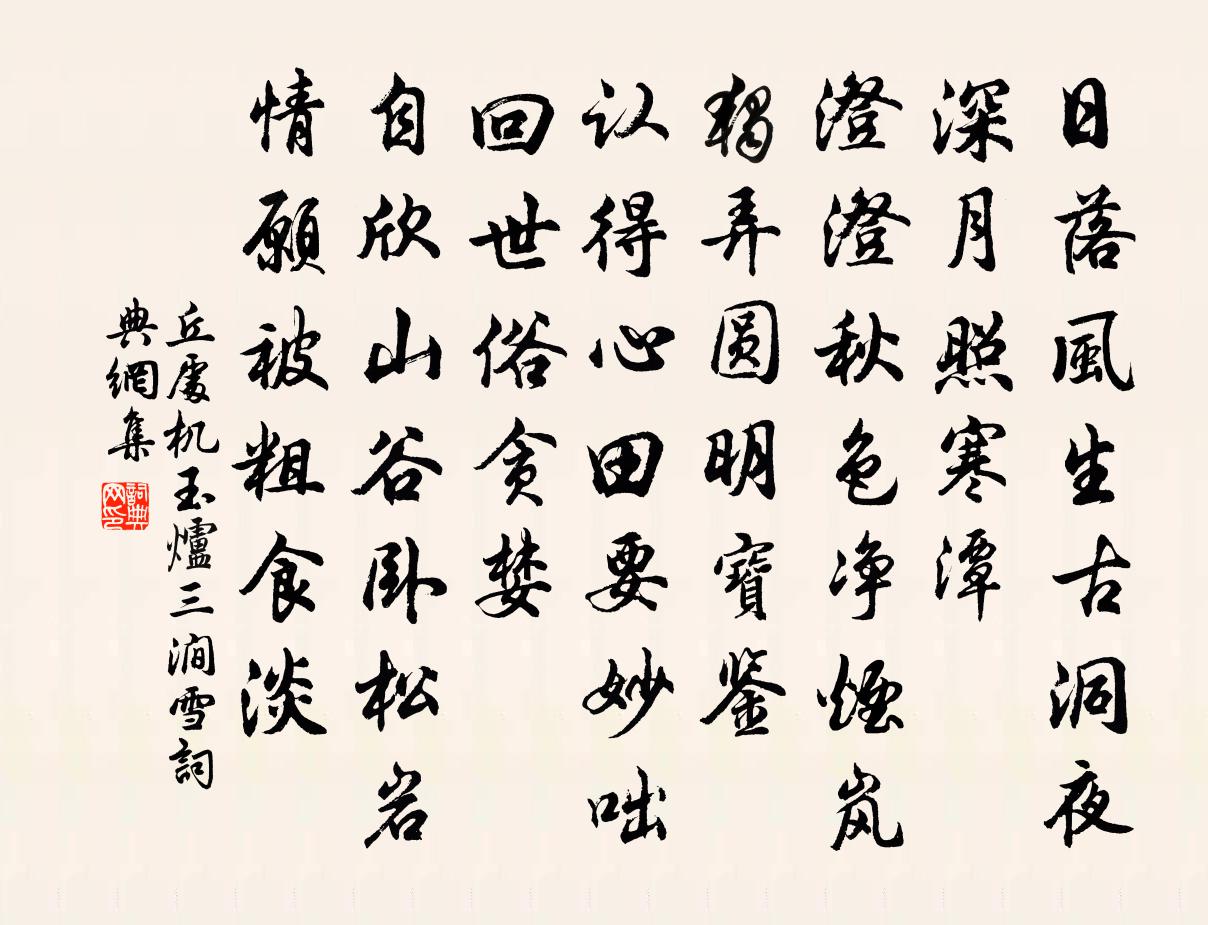 日落風生古洞夜
深月照寒潭
澄澄秋色净煙岚
獨弄圆明寶鉴
认得心田要妙咄
回世俗贪婪
自欣山谷卧松岩
情願被粗食淡
丘處机玉爐三澗雪詞
典網集
詞典网印